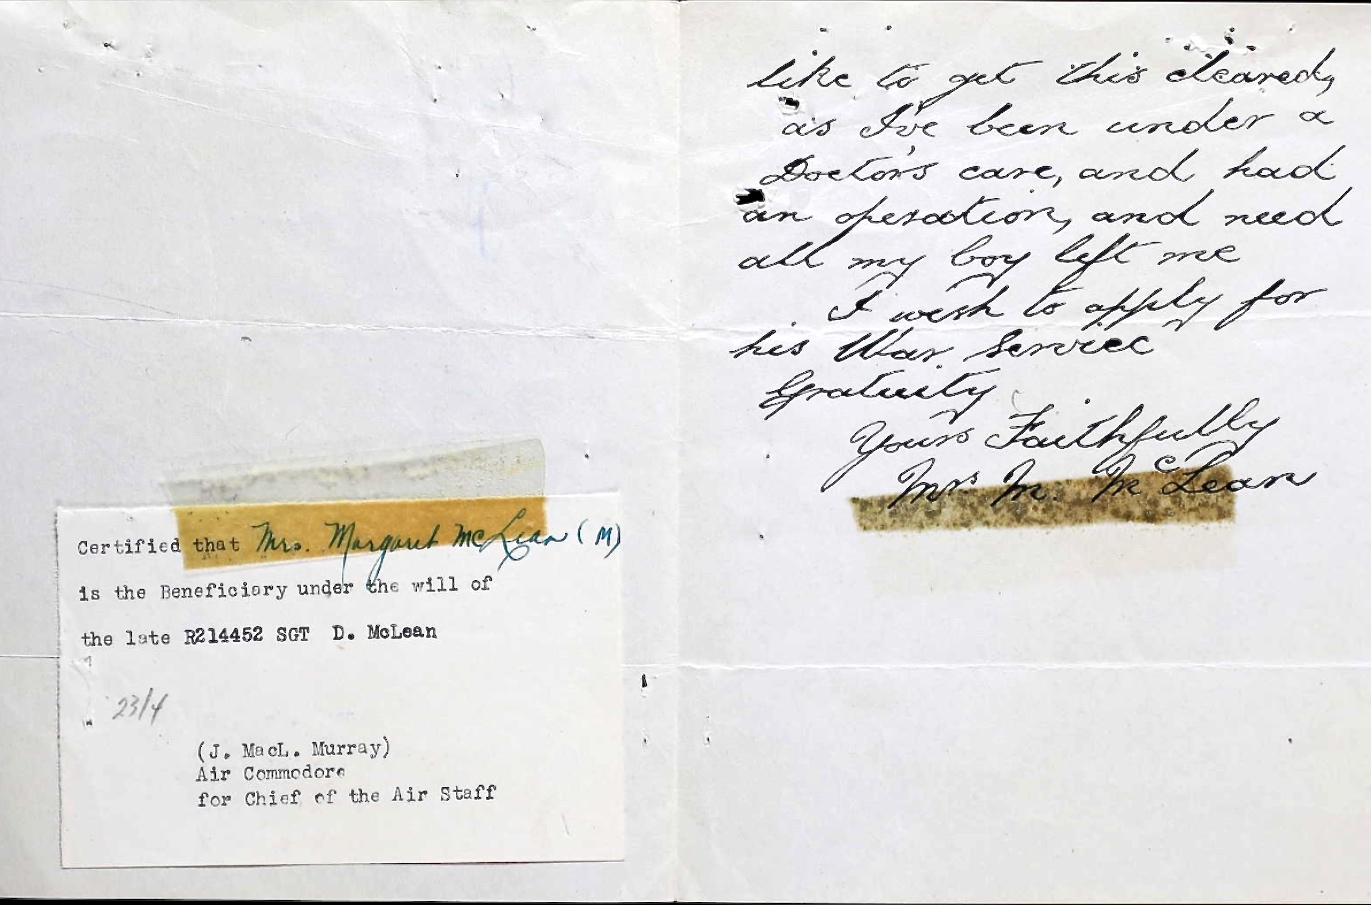 Certified that Mrs. Margaret McLean (M)
is the Beneficiary under the will of
the late R214452 SGT D. McLean
23/4
(J. MacL. Murray)
Air Commodore
for Chief of the Air Staff
like to get this cleared,
as I've been under a
Doctor's care, and had
an operation, and need
all my boy left me
I wish to apply for
his War Service
Gratuity
Yours Faithfully
Mrs M. McLean